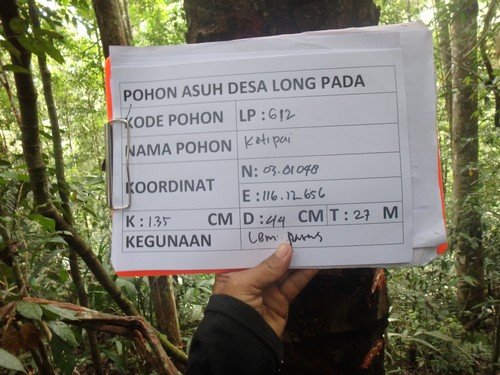 POHON ASUH DESA LONG PADA
KODE POHON LP : 612
NAMA POHON Ketipai
KOORDINAT N : 03.01048
E : 116.12.656
K : 135 CM D : 44 CM T : 27 M
KEGUNAAN